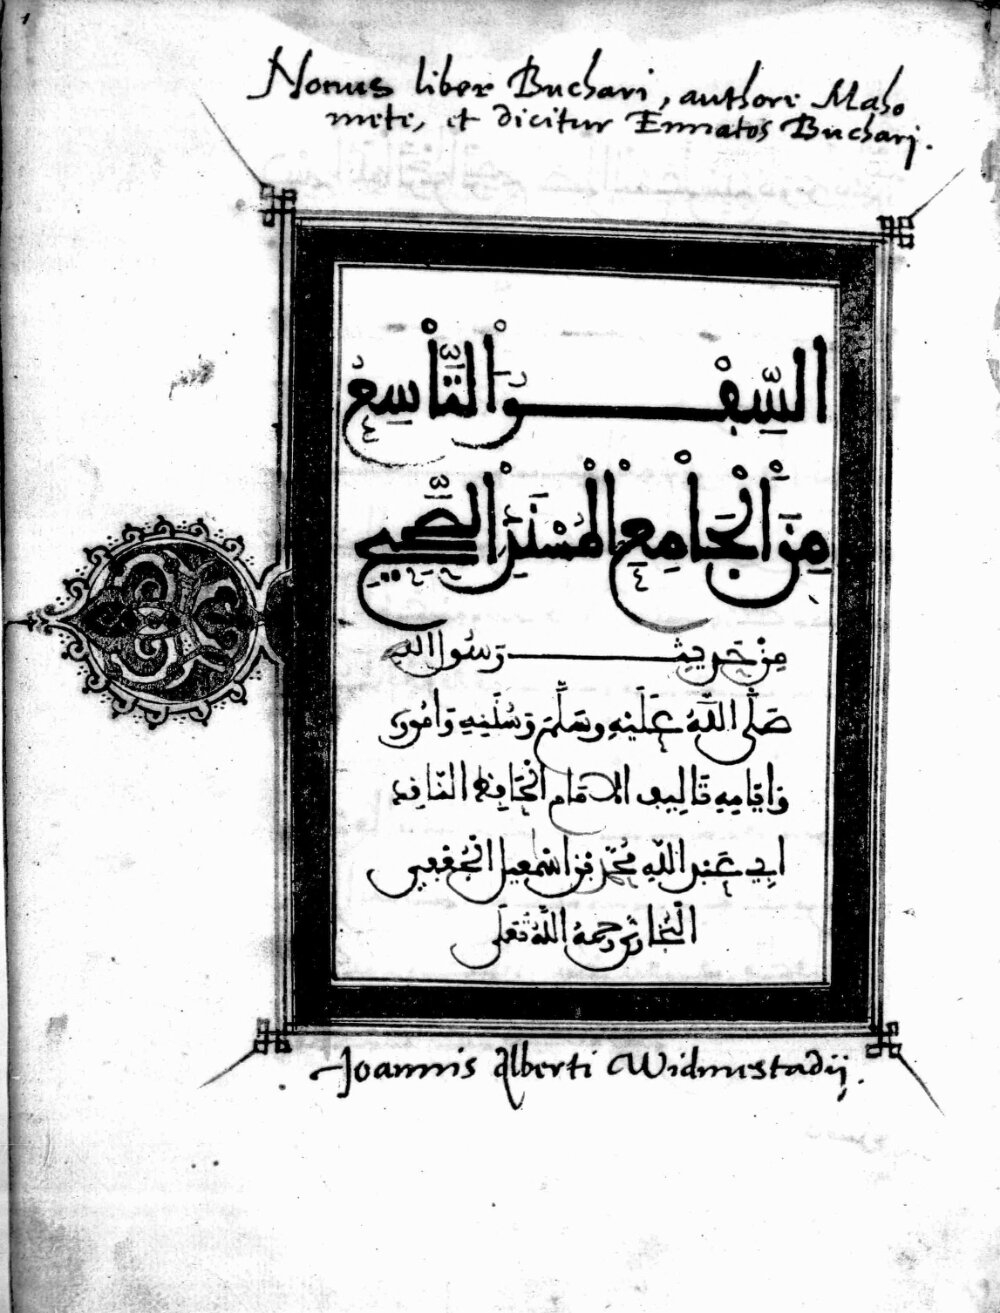 1
Nonus liber Buchari, authore Maho
mete, et dicitur Ennatos Buchari.
السِّفْرُ التَّاسِعُ
مِنَ الْجَامِعِ الْمُسْنَدِ الصَّحِيحِ
مِنْ حَدِيثِ رَسُولِ اللهِ
صَلَّى اللَّهُ عَلَيْهِ وَسَلَّمَ وَسُنَنِهِ وَأُمُورِهِ
وَأَيَّامِهِ تَأْلِيفِ الْإِمَامِ الْحَافِظِ النَّاقِدِ
أَبِي عَبْدِ اللَّهِ مُحَمَّدِ بْنِ اسْمَعِيلَ الْجُعْفِيِّ
الْبُخَارِيِّ رَحِمَهُ اللَّهُ تَعَلَى
Joannis Alberti Widmestadij.